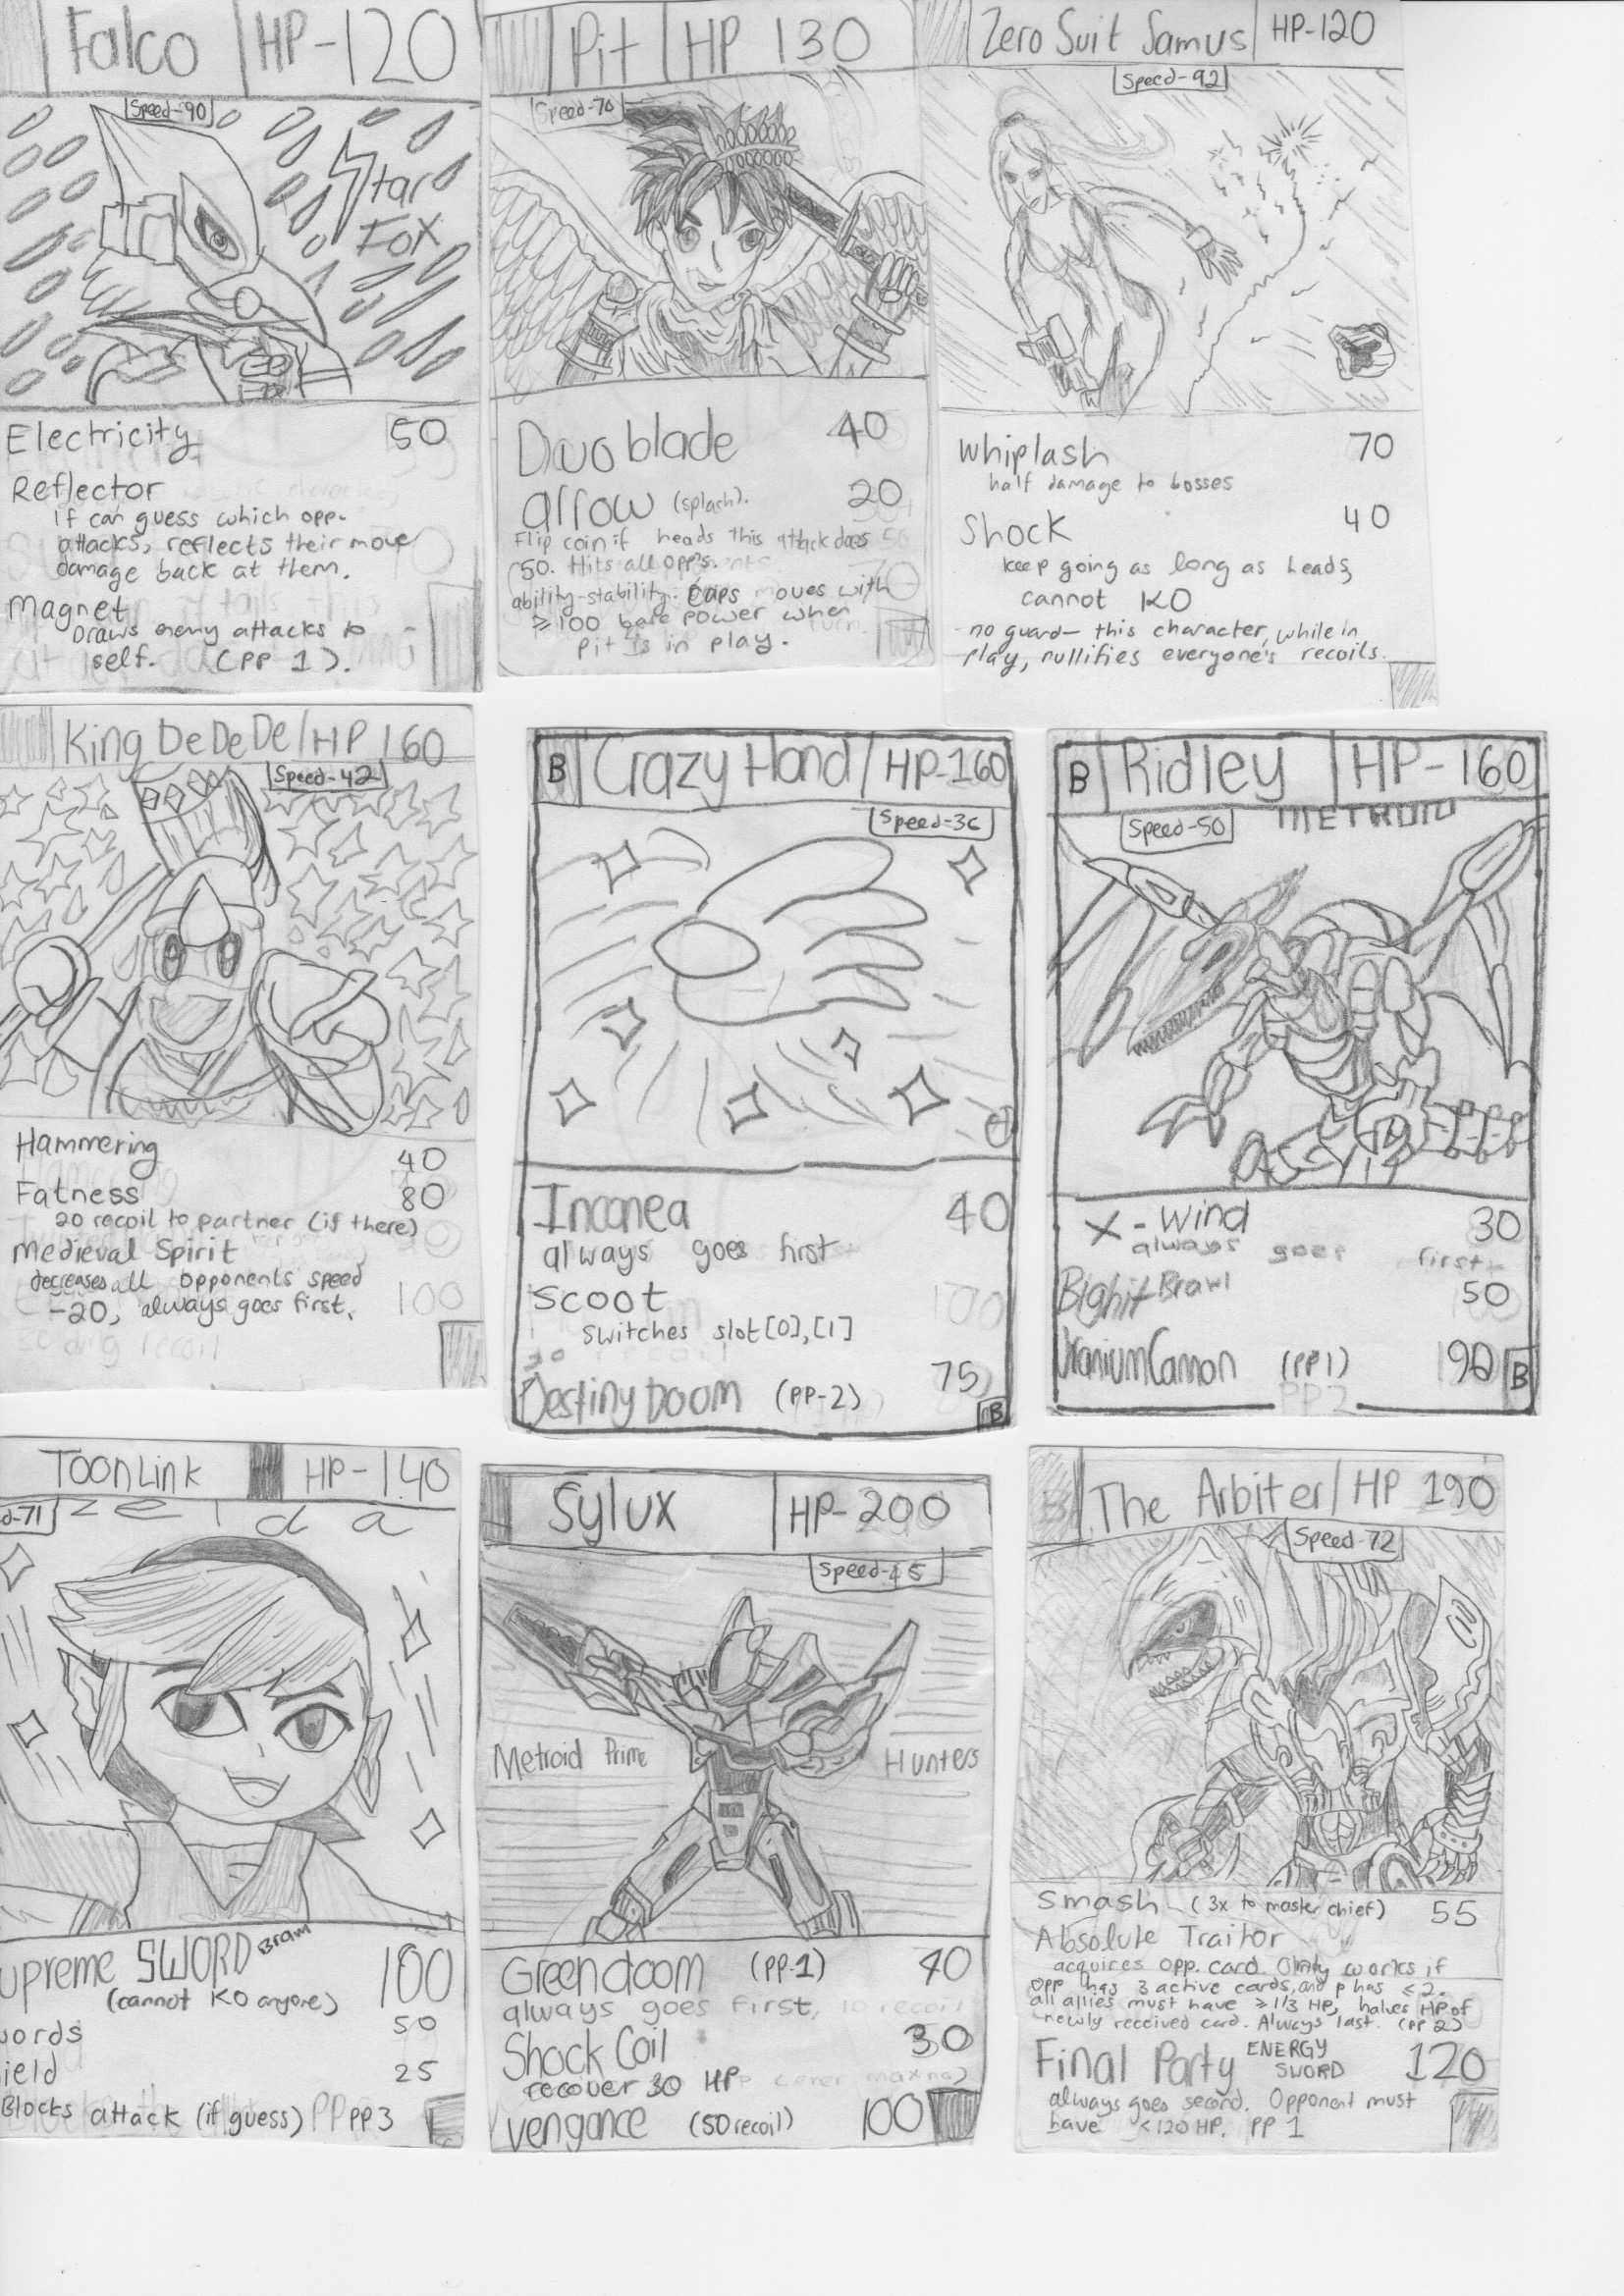 Falco HP-120
Speed-90
Star
Fox
Electricity 50
Reflector
If can guess which opp.
attacks, reflects their move
damage back at them.
Magnet
Draws enemy attacks to
self. (PP 1).
Pit HP 130
Speed-70
Duoblade 40
arrow (splash). 20
Flip coin if heads this attack does
50. Hits all opp's.
ability-stability: Caps moves with
≥100 base power when
Pit is in play.
Zero Suit Samus HP-120
Speed-92
Whiplash 70
half damage to bosses
Shock 40
keep going as long as heads,
cannot KO
-no guard- this character, while in
play, nullifies everyone's recoils.
King DeDeDe HP 160
Speed-42
Hammering 40
Fatness 80
20 recoil to partner (if there)
Medieval Spirit
decreases all opponents speed
-20, always goes first.
B Crazy Hand HP-160
Speed-36
Inconea 40
always goes first
Scoot
switches slot[0],[1]
Destiny Doom (PP-2) 75
B
B Ridley HP-160
METROID
Speed-50
X-Wind 30
always goes first
Bighit Brawl 50
Uranium Cannon (PP1) 190
B
Toon Link HP-140
d-71
Zelda
upreme SWORD Bram 100
(cannot KO anyone)
words 50
ield 25
Blocks attack (if guess) PP3
Sylux HP-200
Speed-45
Metroid Prime Hunters
Greendoom (PP-1) 40
always goes first, 10 recoil
Shock Coil 30
recover 30 HP
vengance (50 recoil) 100
The Arbiter HP 190
Speed-72
Smash (3x to master chief) 55
Absolute Traitor
acquires opp. card. Only works if
opp has 3 active cards, and p has ≤2.
all allies must have ≥1/3 HP, halves HP of
newly received card. Always last. (PP 2)
Final Party ENERGY SWORD 120
always goes second. Opponent must
have <120 HP. PP 1